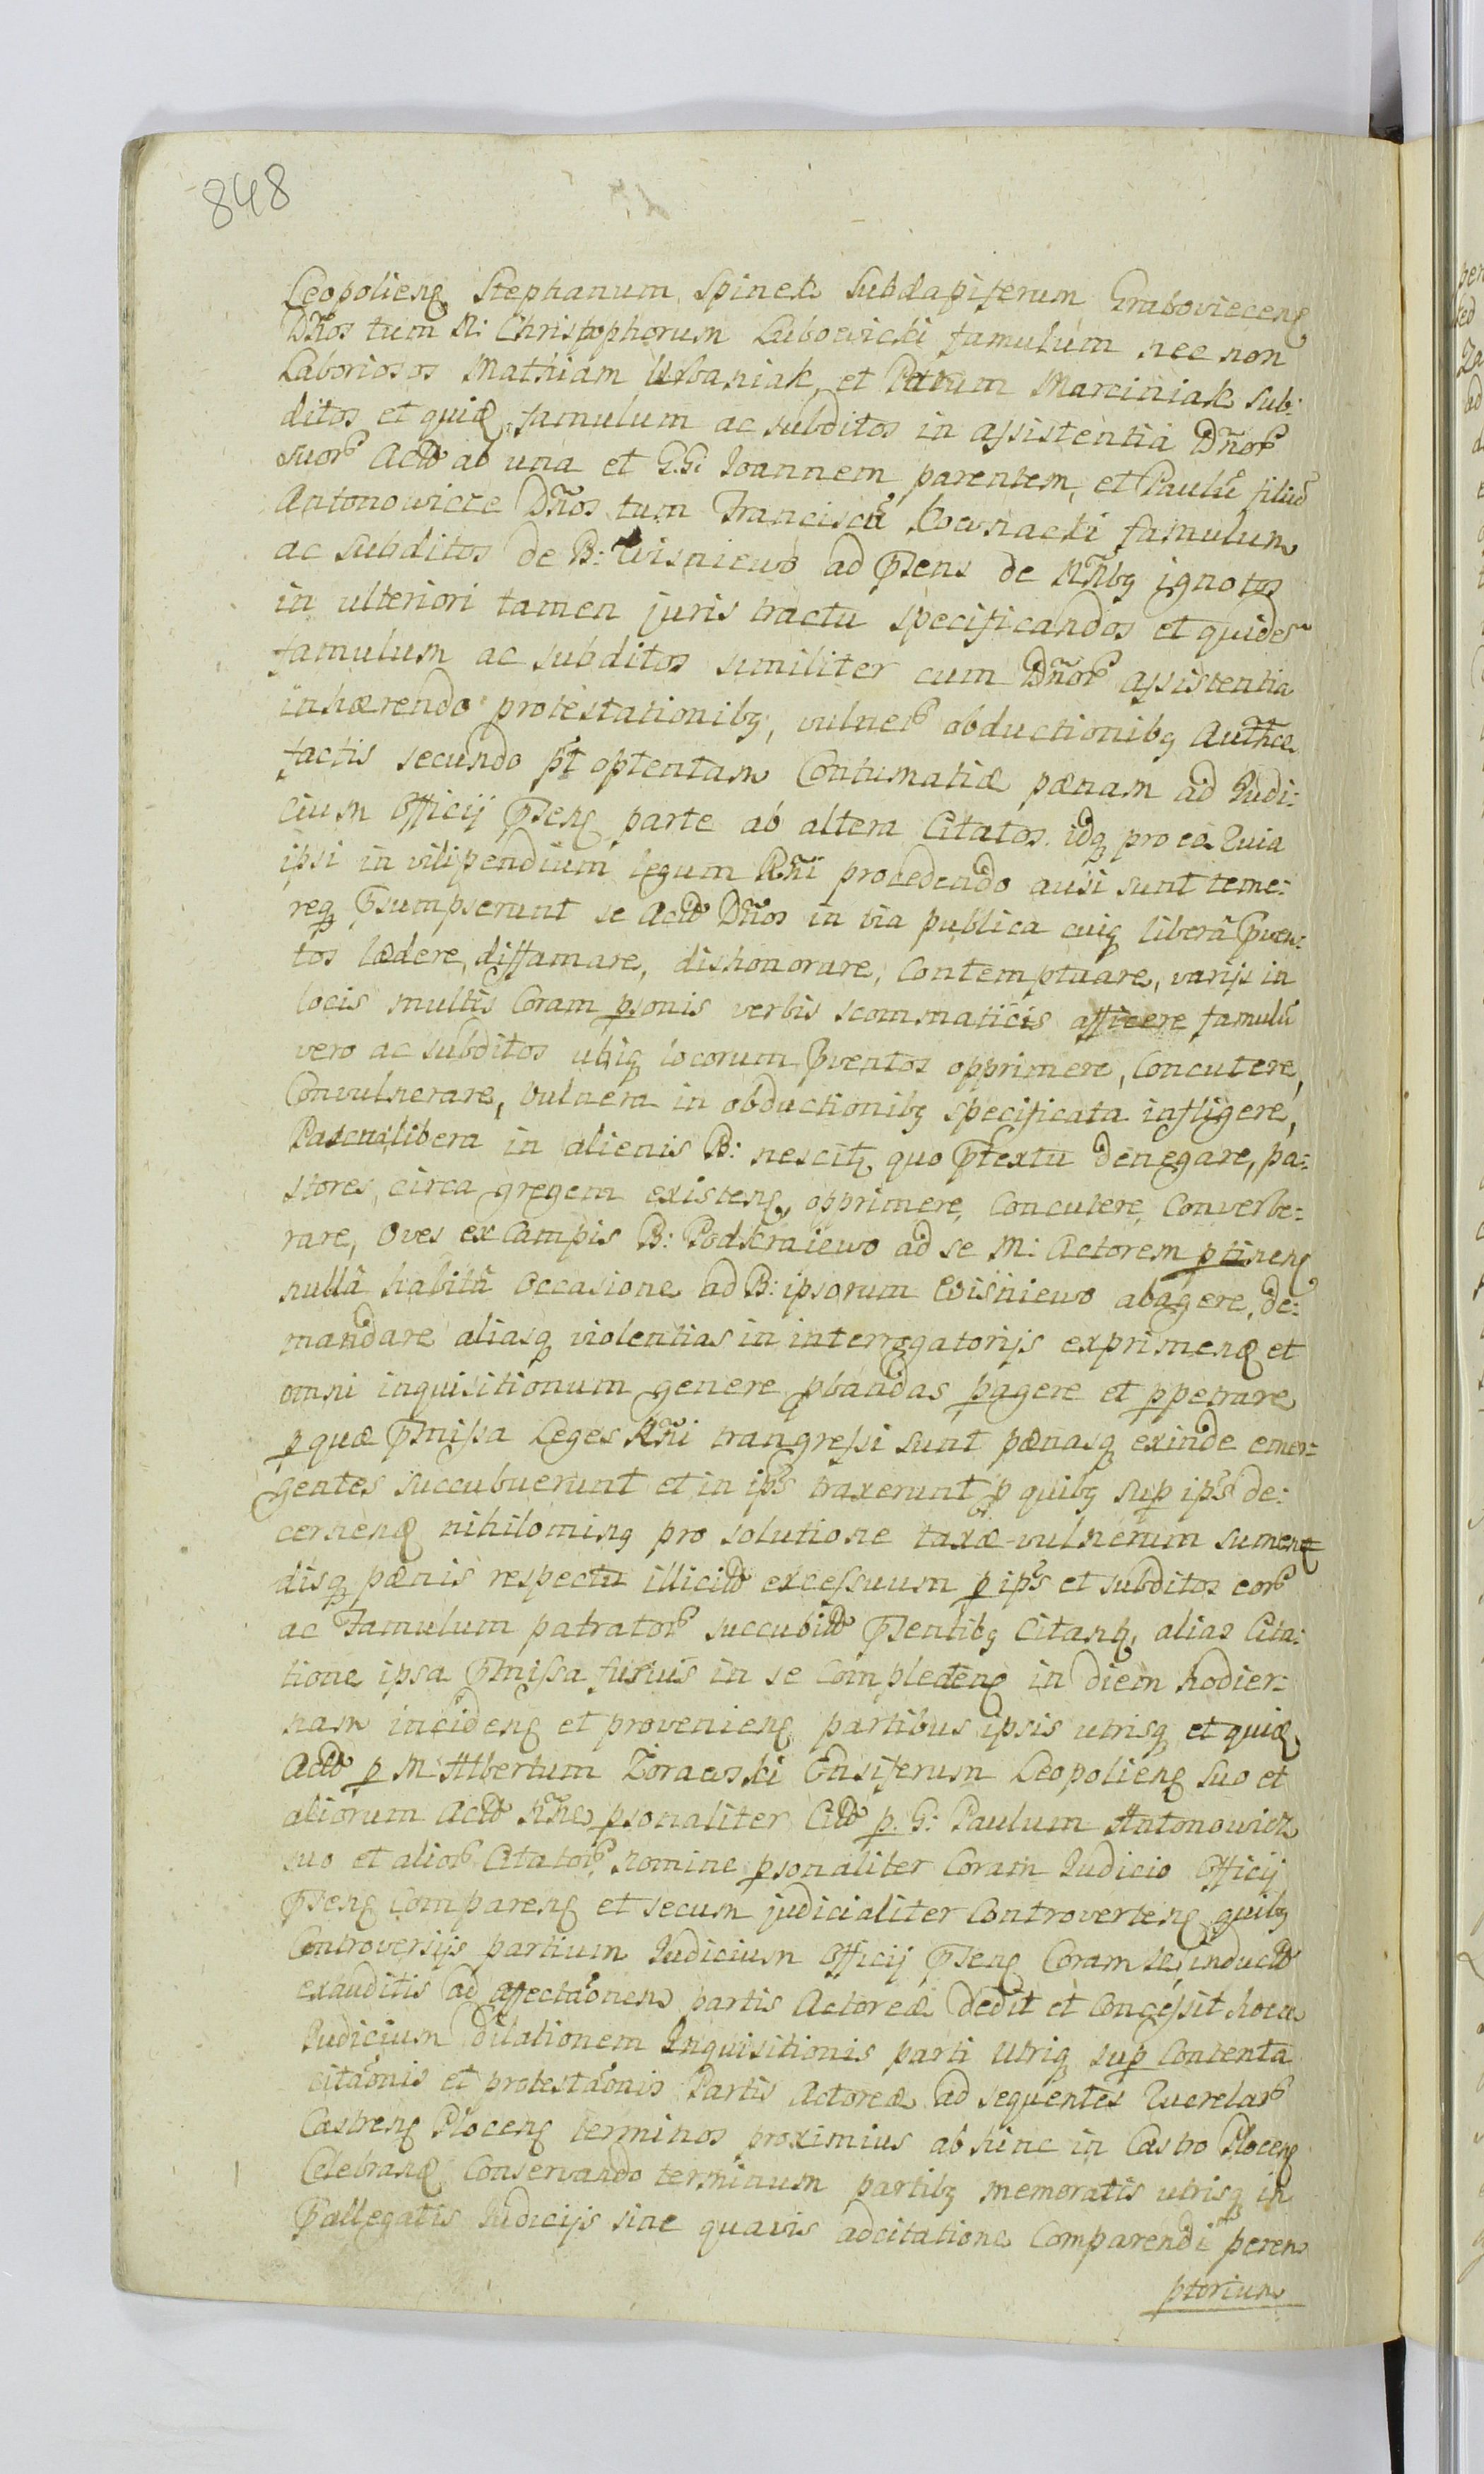 848
Leopolienq Stephanum Spinek Subdapiferum Graboviecenq
Dños tum N: Christophorum Lubowicki famulum nec non
Laboriosos Mathiam Urbaniak, et Petrum Marciniak sub:
ditos et quidē famulum ac subditos in assistentia Dñorꝝ
suorꝝ Actō ab una et G.G: Joannem parentem, et Paulū filiū
Antonowicze Dños tum Franciscū Kownacki famulum
ac subditos de B: Wisniewo ad p̄sens de Nñibꝫ ignotos
in ulteriori tamen juris tractu specificandos et quidem
famulum ac subditos similiter cum Dñorꝝ assistentia
inhærendo protestationibꝫ, vulnerꝝ obductionibꝫ Authce
factis secundo pt̄ optentam Contumatiæ pænam ad Judi:
cium Officij p̄senꝫ parte ab altera Citatos idqꝫ pro eo Quia
ipsi in vilipendium legum Rñi procedendo ausi sunt teme:
reqꝫ p̄sumpserunt se Actō Dños in via publica cuiqꝫ liberā p̄ven:
tos lædere, diffamare, dishonorare, Contemptuare, varijs in
locis multis Coram ꝑsonis verbis scommaticis afficere famulū
vero ac subditos ubiqꝫ locorum p̄ventos opprimere, Concutere,
Convulnerare, Vulnera in obductionibꝫ specificata infligere,
Pascua libera in alienis B: nescitꝫ quo p̄textu denegare, pa:
stores, circa gregem existenꝫ, opprimere, Concutere, Converbe:
rare, Oves ex Campis B: Podkraiewo ad se M: Actorem ꝑtinenꝫ
nullā habitā Occasione ad B: ipsorum Wisniewo abagere, de:
mandare aliasqꝫ violentias in interrogatorijs exprimenđ et
omni inquisitionum genere ꝓbandas ꝑagere et ꝑpetrare
ꝑ quæ p̄missa Leges Rñi trangressi sunt pænasqꝫ exinde emer:
gentes succubuerunt et in ips̄ traxerunt ꝓ quibꝫ sup̱ ips̄ de:
cernenđ nihilominꝫ pro solutione taxæ vulnerum sumen
disqꝫ pænis respectu illicitō excessuum ꝑ ips̄ et subditos eorꝝ
ac Famulum patratorꝝ succubitō p̄sentibꝫ Citanđ, alias Cita:
tione ipsa p̄missa fusius in se Complectenꝫ in diem hodier:
nam incidenꝫ et provenienꝫ partibus ipsis utrisqꝫ et quidē
Actō ꝑ M: Albertum Zorawski Ensiferum Leopolienꝫ suo et
aliorum Actō Nñe ꝑsonaliter Citō ꝑ G: Paulum Antonowicz
suo et aliorꝝ Citatorꝝ nomine ꝑsonaliter Coram Judicio Officij
p̄senꝫ Comparenꝫ et secum judicialiter Controvertenꝫ quibꝫ
Controversijs partium Judicium Officij p̄senꝫ Coram se inductō
exauditis ad affectāonem partis Actoreæ dedit et Concessit hocce
Judicium dilationem Inquisitionis parti Utriqꝫ sup̱ Contenta
citāonis et protestāonis Partis Actoreæ ad sequentes Querelarꝝ
Castrenꝫ Plocenꝫ terminos proximius ab hinc in Castro Plocenꝫ
Celebranđ Conservando terminum partibꝫ memoratis utrisqꝫ in
p̄allegatis Judicijs sine quavis adcitatione Comparendi peren
ptorium